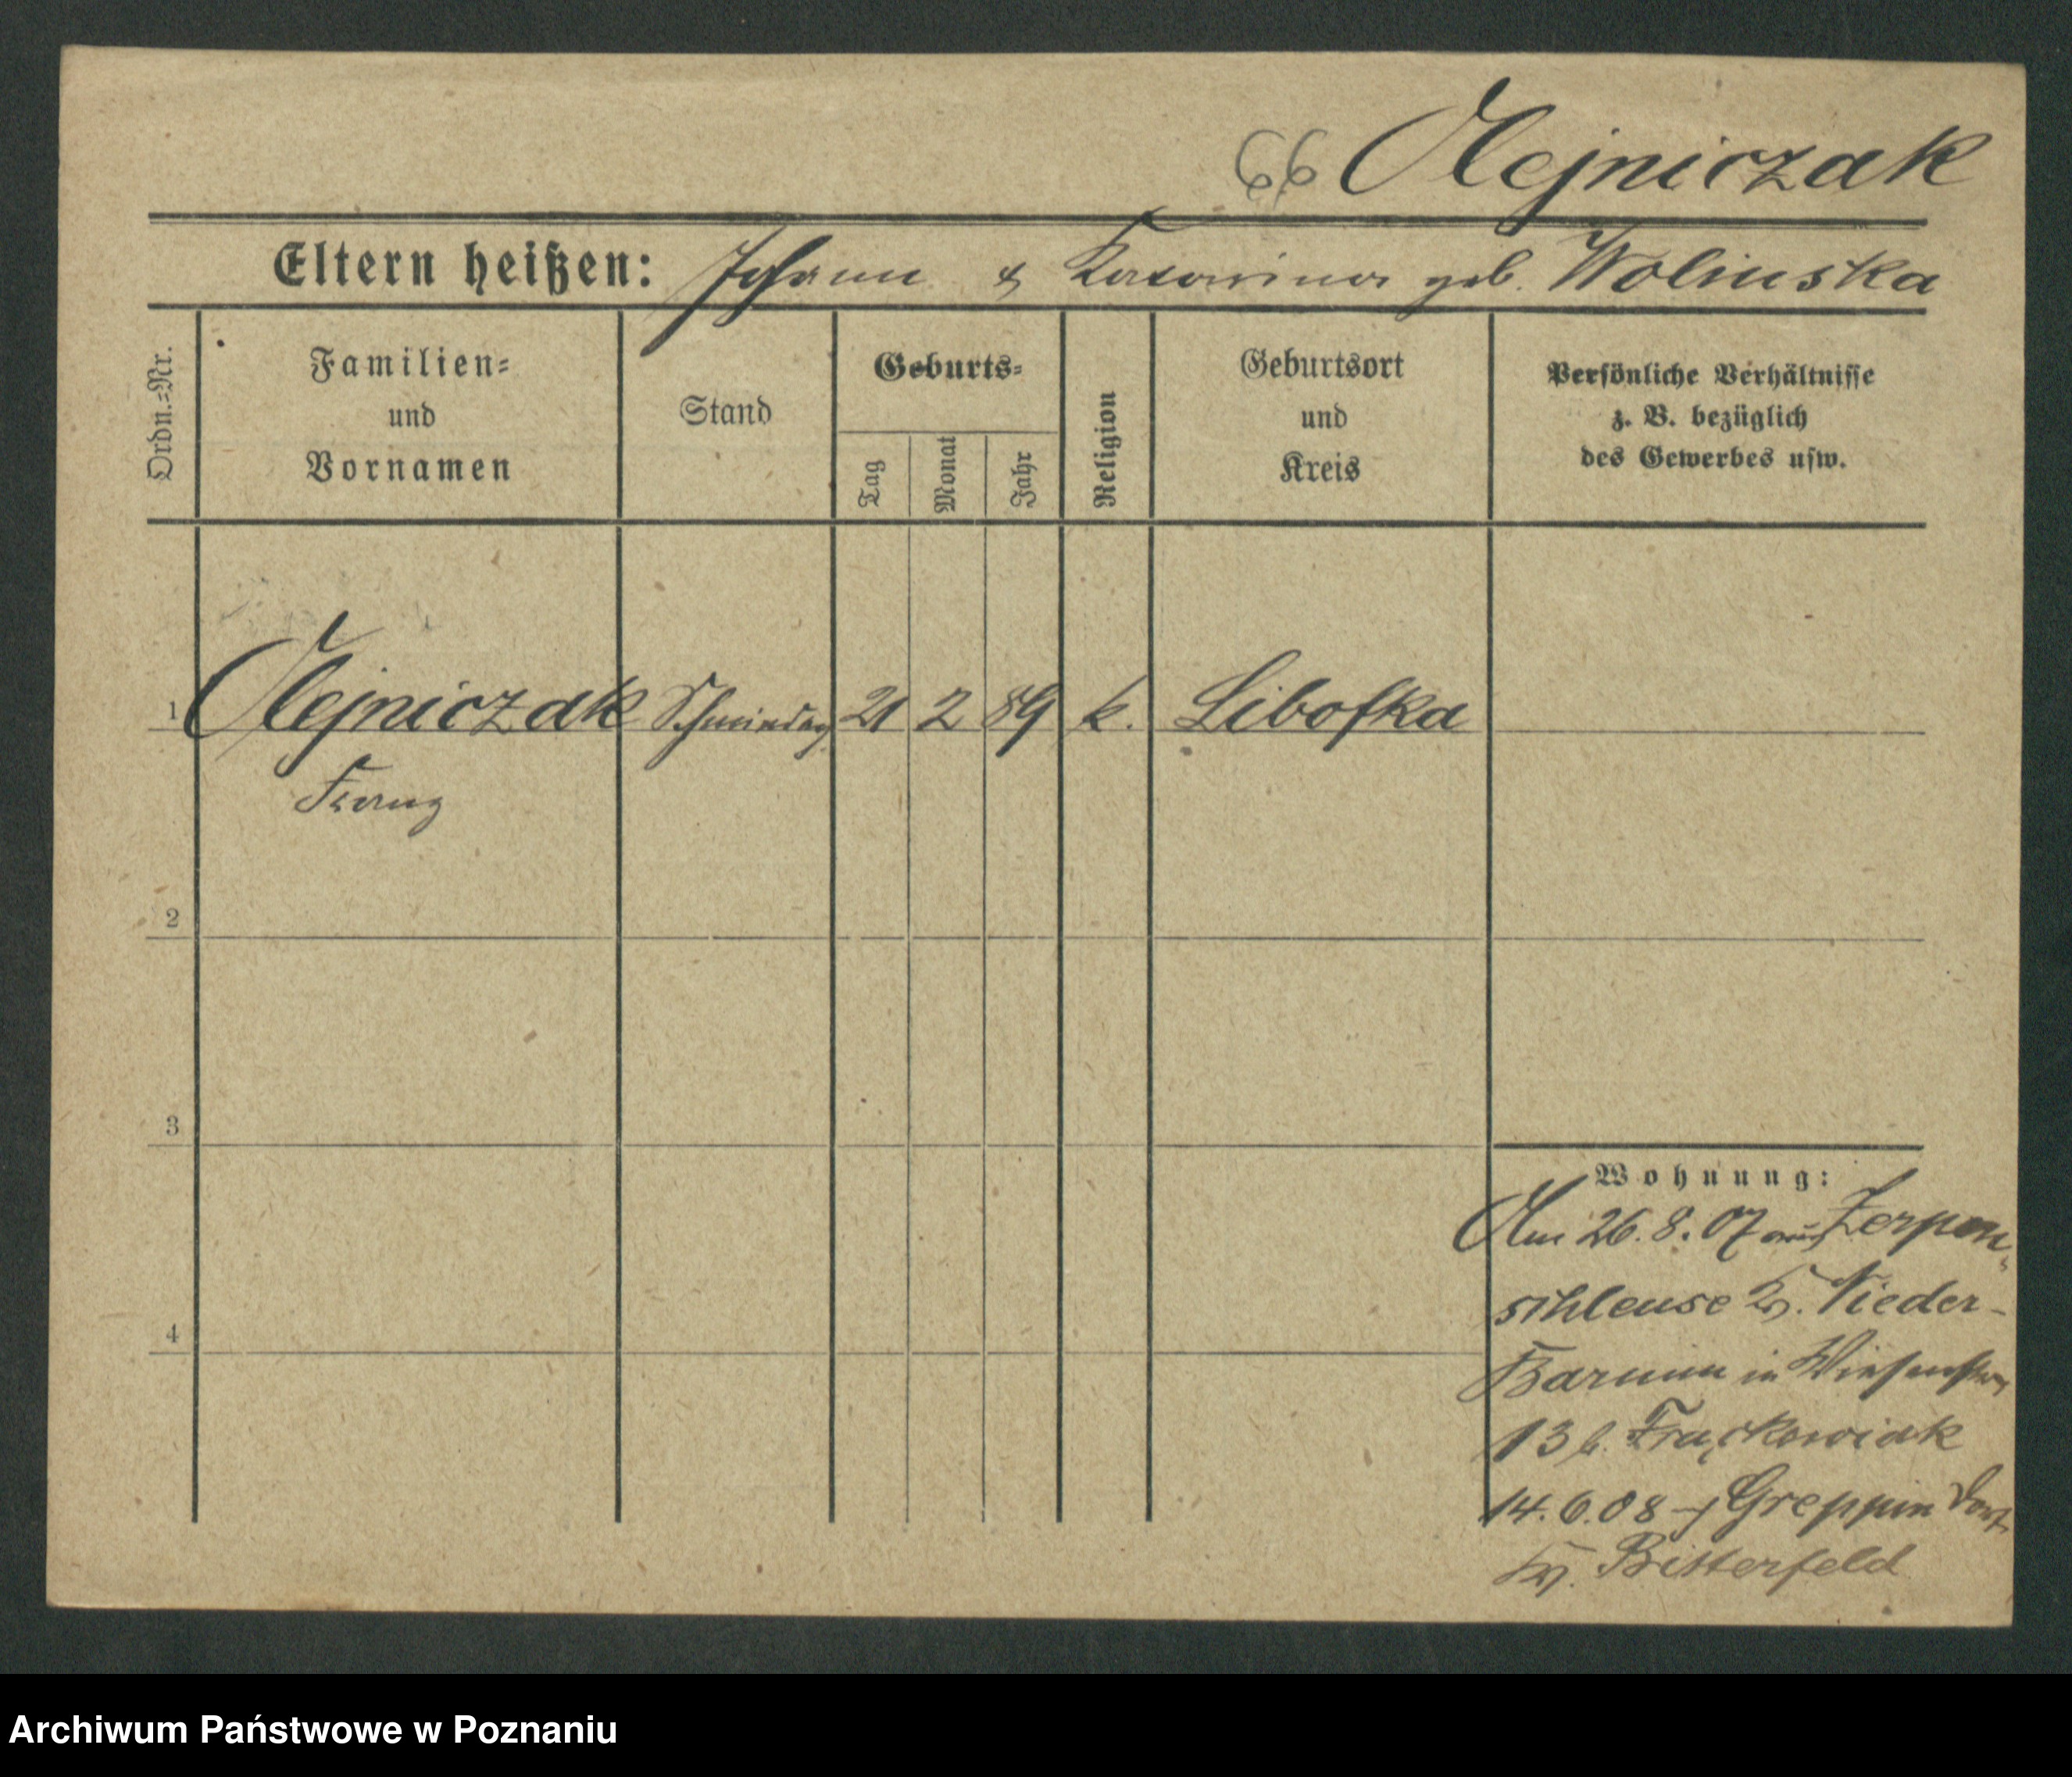 66 Olejniczak
Eltern heißen: Johann & Katarina geb. Wolinska
Ordn.-Nr.
Familien-
und
Vornamen
Stand
Geburts-
Tag
Monat
Jahr
Religion
Geburtsort
und
Kreis
Persönliche Verhältnisse
z. B. bezüglich
des Gewerbes usw.
1 Olejniczak 21 2 89 k. Libofka
Franz
2
3
4
Wohnung:
Am 26.8.07 aus Zerpen-
schleuse Kr. Nieder-
Barnim in Wiesenstr.
13 b. Frąckowiak
14.6.08 Greppin Dorf
Kr. Bitterfeld
Archiwum Państwowe w Poznaniu